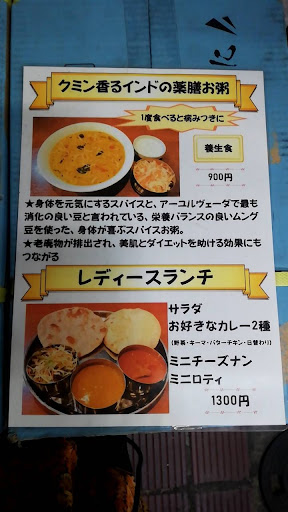 クミン香るインドの薬膳お粥
1度食べると病みつきに
養生食
900円
★身体を元気にするスパイスと、アーユルヴェーダで最も
消化の良い豆と言われている、栄養バランスの良いムング
豆を使った、身体が喜ぶスパイスお粥。
★老廃物が排出され、美肌とダイエットを助ける効果にも
つながる
レディースランチ
サラダ
お好きなカレー2種
(野菜・キーマ・バターチキン・日替わり)
ミニチーズナン
ミニロティ
1300円